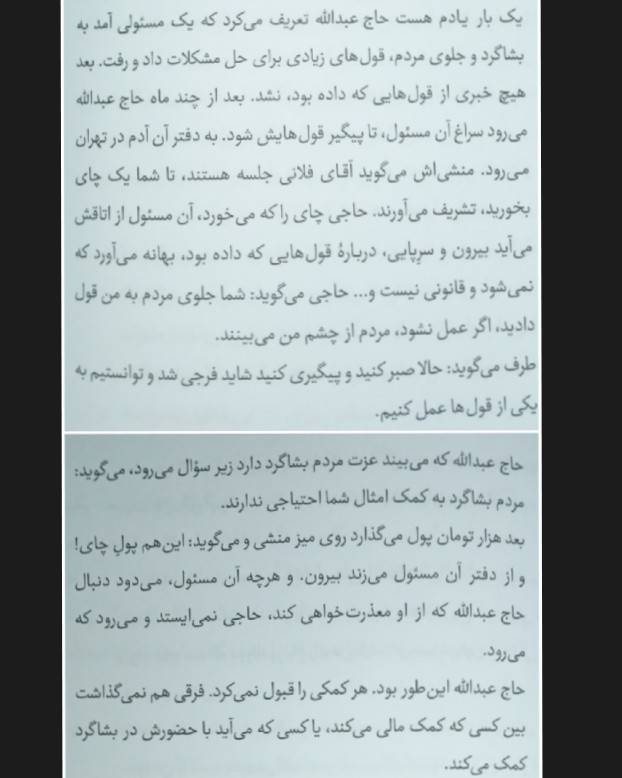 یک بار یادم هست حاج عبدالله تعریف می‌کرد که یک مسئولی آمد به
بشاگرد و جلوی مردم، قول‌های زیادی برای حل مشکلات داد و رفت. بعد
هیچ خبری از قول‌هایی که داده بود، نشد. بعد از چند ماه حاج عبدالله
می‌رود سراغ آن مسئول، تا پیگیر قول‌هایش شود. به دفتر آن آدم در تهران
می‌رود. منشی‌اش می‌گوید آقای فلانی جلسه هستند، تا شما یک چای
بخورید، تشریف می‌آورند. حاجی چای را که می‌خورد، آن مسئول از اتاقش
می‌آید بیرون و سرپایی، دربارهٔ قول‌هایی که داده بود، بهانه می‌آورد که
نمی‌شود و قانونی نیست و... حاجی می‌گوید: شما جلوی مردم به من قول
دادید، اگر عمل نشود، مردم از چشم من می‌بینند.
طرف می‌گوید: حالا صبر کنید و پیگیری کنید شاید فرجی شد و توانستیم به
یکی از قول‌ها عمل کنیم.
حاج عبدالله که می‌بیند عزت مردم بشاگرد دارد زیر سؤال می‌رود، می‌گوید:
مردم بشاگرد به کمک امثال شما احتیاجی ندارند.
بعد هزار تومان پول می‌گذارد روی میز منشی و می‌گوید: این هم پولِ چای!
و از دفتر آن مسئول می‌زند بیرون. و هرچه آن مسئول، می‌دود دنبال
حاج عبدالله که از او معذرت‌خواهی کند، حاجی نمی‌ایستد و می‌رود که
می‌رود.
حاج عبدالله این‌طور بود. هر کمکی را قبول نمی‌کرد. فرقی هم نمی‌گذاشت
بین کسی که کمک مالی می‌کند، یا کسی که می‌آید با حضورش در بشاگرد
کمک می‌کند.